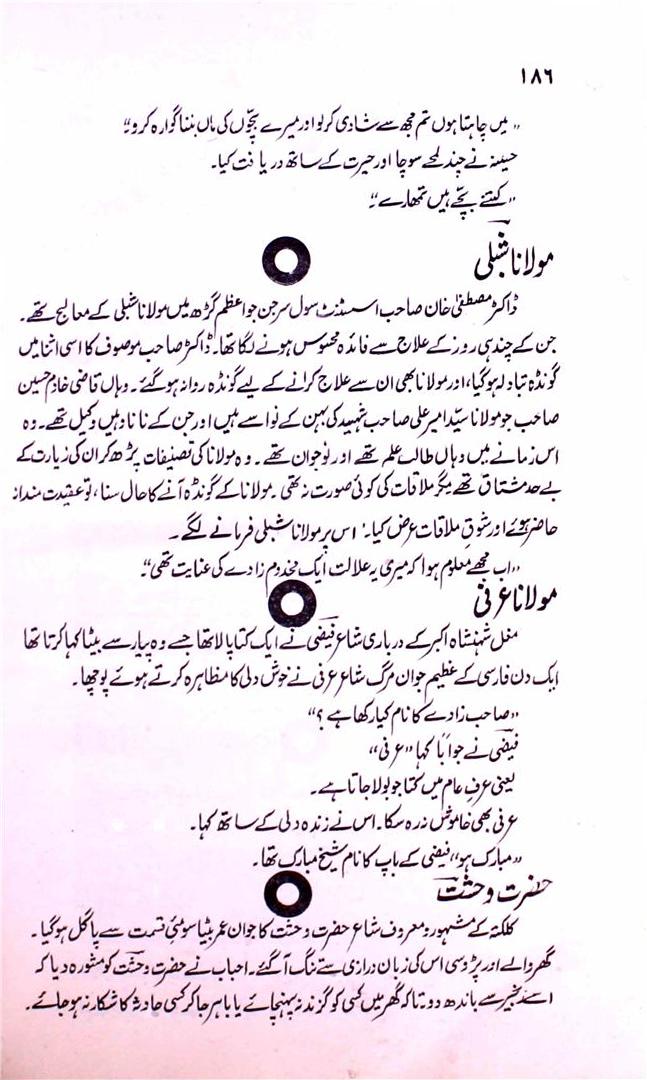 ۱۸۶
"میں چاہتا ہوں تم مجھ سے شادی کرلو اور میرے بچّوں کی ماں بننا گوارہ کرو"
حسینہ نے چند لمحے سوچا اور حیرت کے ساتھ دریافت کیا۔
"کتنے بچّے ہیں تمہارے"۔
مولانا شبلی
ڈاکٹر مصطفیٰ خان صاحب اسسٹنٹ سول سرجن جو اعظم گڑھ میں مولانا شبلی کے معالج تھے۔
جن کے چند ہی روز کے علاج سے فائدہ محسوس ہونے لگا تھا۔ ڈاکٹر صاحب موصوف کا اسی اثنا میں
گونڈہ تبادلہ ہو گیا، اور مولانا بھی ان سے علاج کرانے کے لیے گونڈہ روانہ ہو گئے۔ وہاں قاضی خادم حسین
صاحب جو مولانا سیّد امیر علی صاحب شہید کی بہن کے نواسے ہیں اور جن کے نانا وہیں وکیل تھے۔ وہ
اس زمانے میں وہاں طالب علم تھے اور نوجوان تھے۔ وہ مولانا کی تصنیفات پڑھ کر ان کی زیارت کے
بے حد مشتاق تھے مگر ملاقات کی کوئی صورت نہ تھی۔ مولانا کے گونڈہ آنے کا حال سنا، تو عقیدت مندانہ
حاضر ہوئے اور شوقِ ملاقات عرض کیا۔ اس پر مولانا شبلی فرمانے لگے۔
"اب مجھے معلوم ہوا کہ میری یہ علالت ایک مخدوم زادے کی عنایت تھی"۔
مولانا عرفی
مغل شہنشاہ اکبر کے درباری شاعر فیضی نے ایک کتا پالا تھا جسے وہ پیار سے بیٹا کہا کرتا تھا
ایک دن فارسی کے عظیم جوان مرگ شاعر عرفی نے خوش دلی کا مظاہرہ کرتے ہوئے پوچھا۔
"صاحب زادے کا نام کیا رکھا ہے؟"
فیضی نے جواباً کہا "عرفی"
یعنی عرفِ عام میں کتا جو بولا جاتا ہے۔
عرفی بھی خاموش نہ رہ سکا۔ اس نے زندہ دلی کے ساتھ کہا۔
"مبارک ہو" فیضی کے باپ کا نام شیخ مبارک تھا۔
حضرت وحشت
کلکتہ کے مشہور و معروف شاعر حضرت وحشت کا جوان عمر بیٹا سوئے قسمت سے پاگل ہو گیا۔
گھر والے اور پڑوسی اس کی زبان درازی سے تنگ آ گئے۔ احباب نے حضرت وحشت کو مشورہ دیا کہ
اسے زنجیر سے باندھ دو تاکہ گھر میں کسی کو گزند نہ پہنچائے یا باہر جا کر کسی حادثہ کا شکار نہ ہو جائے۔